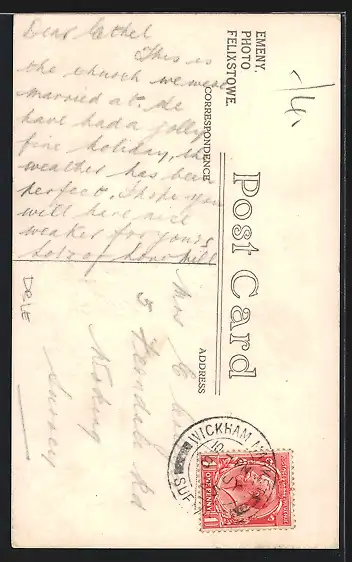 Dear Ethel
This is
the church we were
married at. We
have had a jolly
fine holiday, the
weather has been
perfect. I hope you
will have nice
weaker for yours
lots of love Nell
EMENY.
PHOTO
FELIXSTOWE.
CORRESPONDENCE
Post Card
ADDRESS
Mrs C
5 Ferndale Rd
Woking
Surrey
DBLE
1/4.
WICKHAM
SUF
ONE PENNY